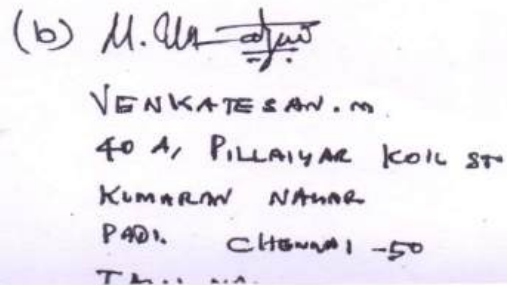 (b) M.
VENKATESAN. M
40 A, PILLAIYAR KOIL ST
KUMARAN NAGAR
PADI. CHENNAI -50